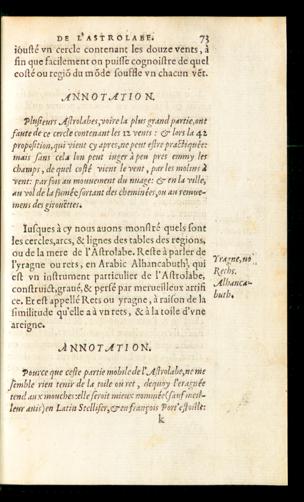 DE L'ASTROLABE. 73
iousté vn cercle contenant les douze vents, à
fin que facilement on puisse cognoistre de quel
costé ou regiō du mōde souffle vn chacun vēt.
ANNOTATION.
Plusieurs Astrolabes, voire la plus grand partie, ont
faute de ce cercle contenant les 12 vents: & lors la 42
proposition, qui vient cy apres, ne peut estre practiquée:
mais sans cela lon peut inger à peu pres emmy les
champs, de quel costé vient le vent, par les molins à
vent: par fois au mouuement du nuage: & en la ville,
au vol de la fumée sortant des cheminées, ou au remue-
mens des girouettes.
Iusques à cy nous auons monstré quels sont
les cercles, arcs, & lignes des tables des regions,
ou de la mere de l'Astrolabe. Reste à parler de
l'yragne ou rets, en Arabic Alhancabuth, qui
est vn instrument particulier de l'Astrolabe,
construict, graué, & persé par merueilleux artifi
ce. Et est appellé Rets ou yragne, à raison de la
similitude qu'elle a à vn rets, & à la toile d'vne
areigne.
Yragne, ou
Reths.
Alhanca-
buth.
ANNOTATION.
Pource que ceste partie mobile de l'Astrolabe, ne me
semble rien tenir de la toile ou ret, dequoy l'eragnée
tend aux mouches: elle seroit mieux nommée (sauf meil-
leur auis) en Latin Stellifer, & en françois Port'estoille:
k